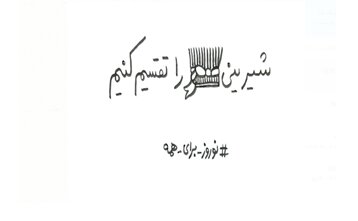 شیرین را تقسیم کنیم
#نوروز-برای-همه